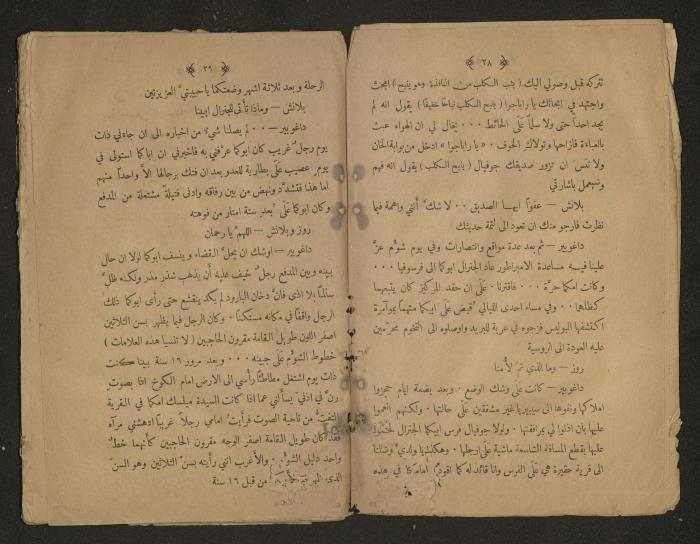 ﴿ ٢٨ ﴾
تتركه قبل وصولي اليك ( يثب الكلب من النافذة وهو ينبح ) ابحث
واجتهد في ابحاثك يا راباجوا ( ينبح الكلب نباحاً خفيفاً ) يقول انه لم
يجد احداً حتى ولا سلماً عَلَى الحائط ٠٠٠ يخال لي ان الهواء عبث
بالعباءة فازاحها وتولاك الخوف ٠ « يا راباجوا » ادخل من بوابة الخان
ولا تنسَ ان تزور صديقك جوفيال ( ينبح الكلب ) يقول انه فهم
وسيعمل باشارتي
بلانش — عفواً ايهـا الصديق ٠٠ لا شك أنني واهمة فيما
نظرت فارجو منك ان تعود الى تتمة حديثك
داغوبير — ثم بعد عدة مواقع وانتصارات وفي يوم شؤم عزَّ
علينا فيـه مساعدة الامبراطور عاد الجنرال ابوكما الى فرسوفيا ٠٠٠
وكانت امكما حرّة ٠٠٠ فاقترنا ٠ عَلَى ان حقد المركيز كان يتبعهما
كظلهما ٠٠ وفي مساء احدى الليالي قُبض عَلَى ابيكما متهماً بمؤامرة
اكتشفها البوليس فزجوه في عربة للبريد واوصلوه الى التخوم محرّمين
عليه العودة الى الروسية
روز — وما الذي تمَّ لأُمنا
داغوبير — كانت عَلَى وشك الوضع ٠ وبعد بضعة ايام حجزوا
املاكها ونفوها الى سيبيريا غير مشفقين عَلَى حالتها ٠ ولكنهم انعموا
عليها بان اذنوا لي بمرافقتها ٠ ولولا جوفيال فرس ابيكما الجنرال
عليها بقطع المسافة الشاسعة ماشية عَلَى ارجلها ٠ وهكذا يا ولديَّ وصلنا
الى قرية حقيرة هي عَلَى الفرس وانا قائد له كما اقودكما في هذه
﴿ ٢٩ ﴾
الرحلة وبعد ثلاثة اشهر وضعتكما يا حبيبتيَّ العزيزتين
بلانش — وماذا تأتى للجنرال ابينا
داغوبير — ٠٠ لم يصلنا شيء من اخباره الى ان جاءني ذات
يوم رجل غريب كان ابوكما عرَّفني به فاخبرني ان اباكما استولى في
يوم عصيب عَلَى بطارية للعدو بعد ان فتك برجالها الَّا واحداً منهم
اما هذا فتشدَّد ونهض من بين رفاقه وادنى فتيلة مشتعلة من المدفع
وكان ابوكما عَلَى بعد ستة امتار من فوهته
روز وبلانش — اللهمَّ يا رحمان
داغوبير — اوشك ان يحلَّ القضاء وينسف ابوكما لولا ان حال
بينه وبين المدفع رجل خيف عليه أن يذهب شذر مذر ولكنه ظلَّ
سالماً بلا اذى فانَّ دخان البارود لم يكد ينقشع حتى رأى ابوكما ذلك
الرجل واقفاً في مكانه مستكناً ٠ وكان الرجل فيما يظهر بسن الثلاثين
اصفر اللون طويل القامة مقرون الحاجبين ( لا تنسيا هذه العلامات )
خطوط الشؤم عَلَى جبينه ٠٠٠ وبعد مرور ١٦ سنة بينا كنت
ذات يوم اشتغل مطأطئاً رأسي الى الارض امام الكوخ اذا بصوت
رنَّ في اذنيَّ يسألني عما اذا كانت السيدة ميلسك امكما في القرية
التفتُّ من ناحية الصوت فرأيت امامي رجلاً غريباً ادهشني مرآه
فقد كان طويل القامة اصفر الوجه مقرون الحاجبين كأنهما خط
واحد دليل الشؤم ٠ والاغرب انني رأيته بسن الثلاثين وهو السن
الذي ظهر من قبل ١٦ سنة